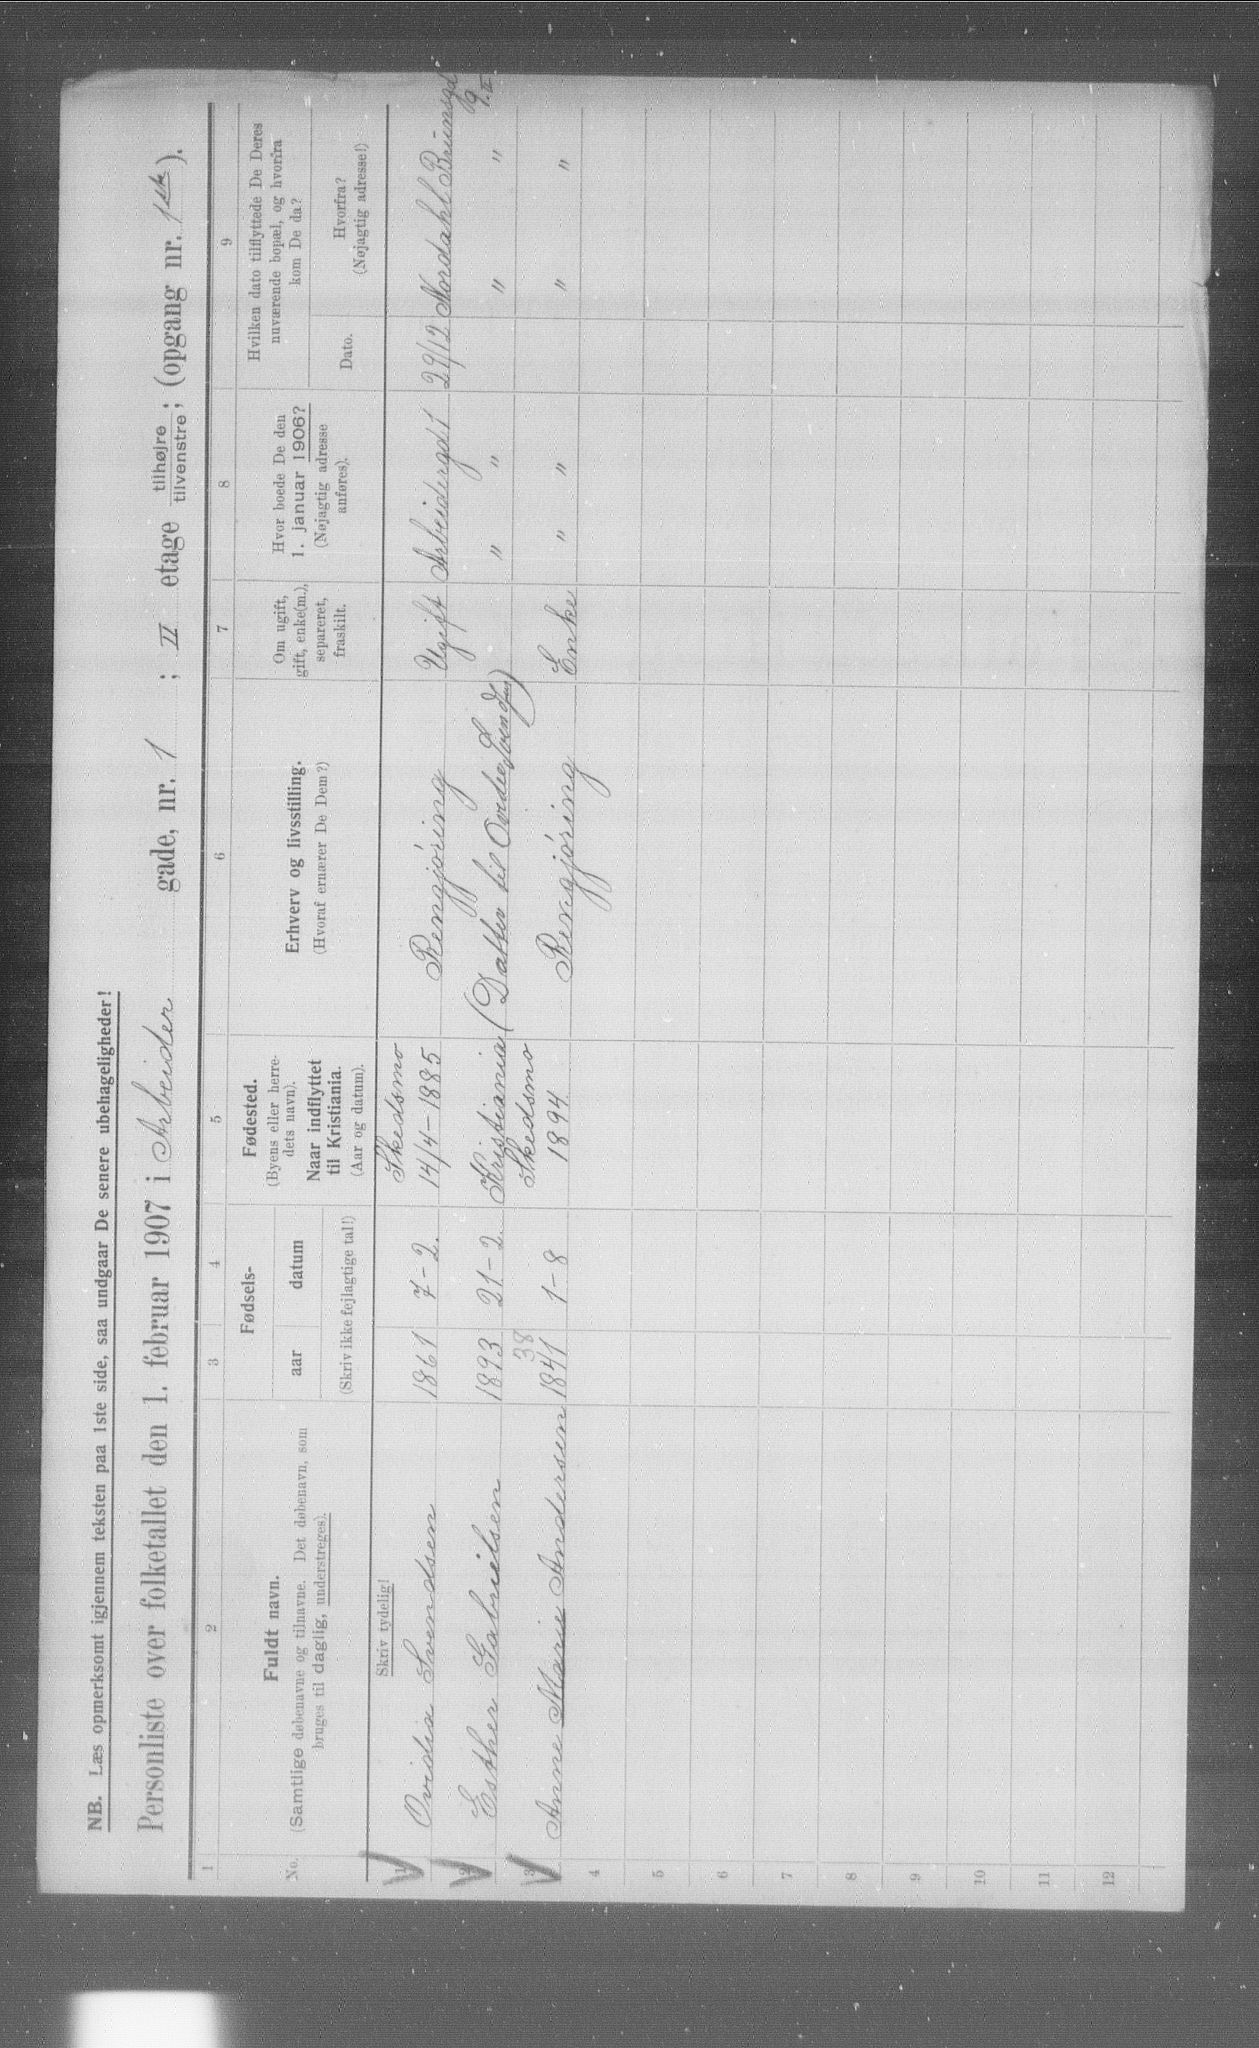 NB. Læs opmerksomt igjennem teksten paa 1ste side, saa undgaar De senere ubehageligheder!
Personliste over folketallet den 1. februar 1907 i Arbeider gade, nr. 1 ; II etage tilhøjre tilvenstre ; (opgang nr. 1ste ).
1 2 3 4 5 6 7 8 9
No.
Fuldt navn.
(Samtlige døbenavne og tilnavne. Det døbenavn, som
bruges til daglig, understreges).
Fødsels-
aar datum
(Skriv ikke fejlagtige tal!)
Fødested.
(Byens eller herre-
dets navn).
Naar indflyttet
til Kristiania.
(Aar og datum).
Erhverv og livsstilling.
(Hvoraf ernærer De Dem?)
Om ugift,
gift, enke(m.),
separeret,
fraskilt.
Hvor boede De den
1. januar 1906?
(Nøjagtig adresse
anføres).
Hvilken dato tilflyttede De Deres
nuværende bopæl, og hvorfra
kom De da?
Dato.
Hvorfra?
(Nøjagtig adresse!)
Skriv tydelig!
1 Ovidia Svendsen 1861 7-2. Skedsmo 14/4-1885 Rengjøring Ugift Arbeidergd 1 29/12 Nordahl Brunsgd 9. II
2 Esther Gabrielsen 1893 21-2. Kristiania (Datter til Ovidie Svendsen) " " " "
3 Anne Marie Andersen 1841 38 1-8 Skedsmo 1894 Rengjøring Enke " " " "
4
5
6
7
8
9
10
11
12